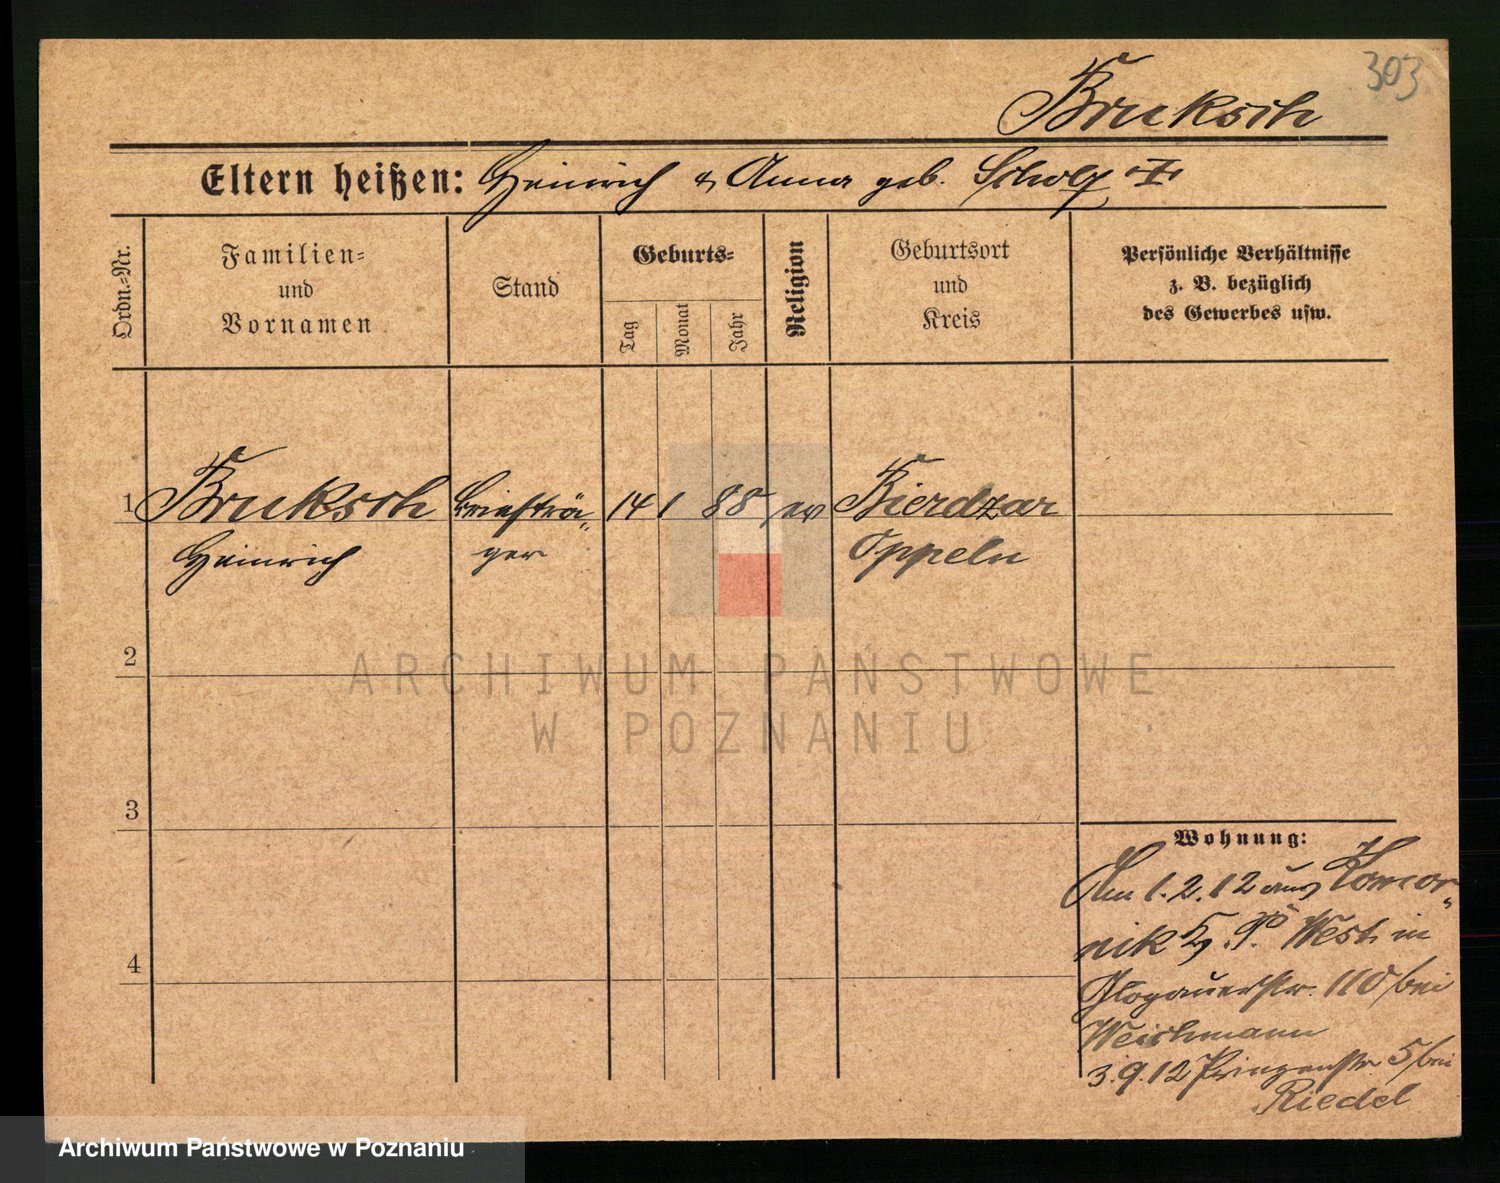 303
Bruksch
Eltern heißen: Heinrich & Anna geb. Scholz
Ordn.-Nr.
Familien-
und
Vornamen
Stand
Geburts-
Tag
Monat
Jahr
Religion
Geburtsort
und
Kreis
Persönliche Verhältnisse
z. B. bezüglich
des Gewerbes usw.
1 Bruksch Briefträ- 14 1 88 ev Bierdzan
Heinrich ger Oppeln
2
ARCHIWUM PAŃSTWOWE
W POZNANIU
3
4
Wohnung:
Am 1.2.12 aus Komor-
nik P. West in
Glogauerstr. 110 bei
Weichmann
3.9.12 Prinzenstr 5 bei
Riedel
Archiwum Państwowe w Poznaniu